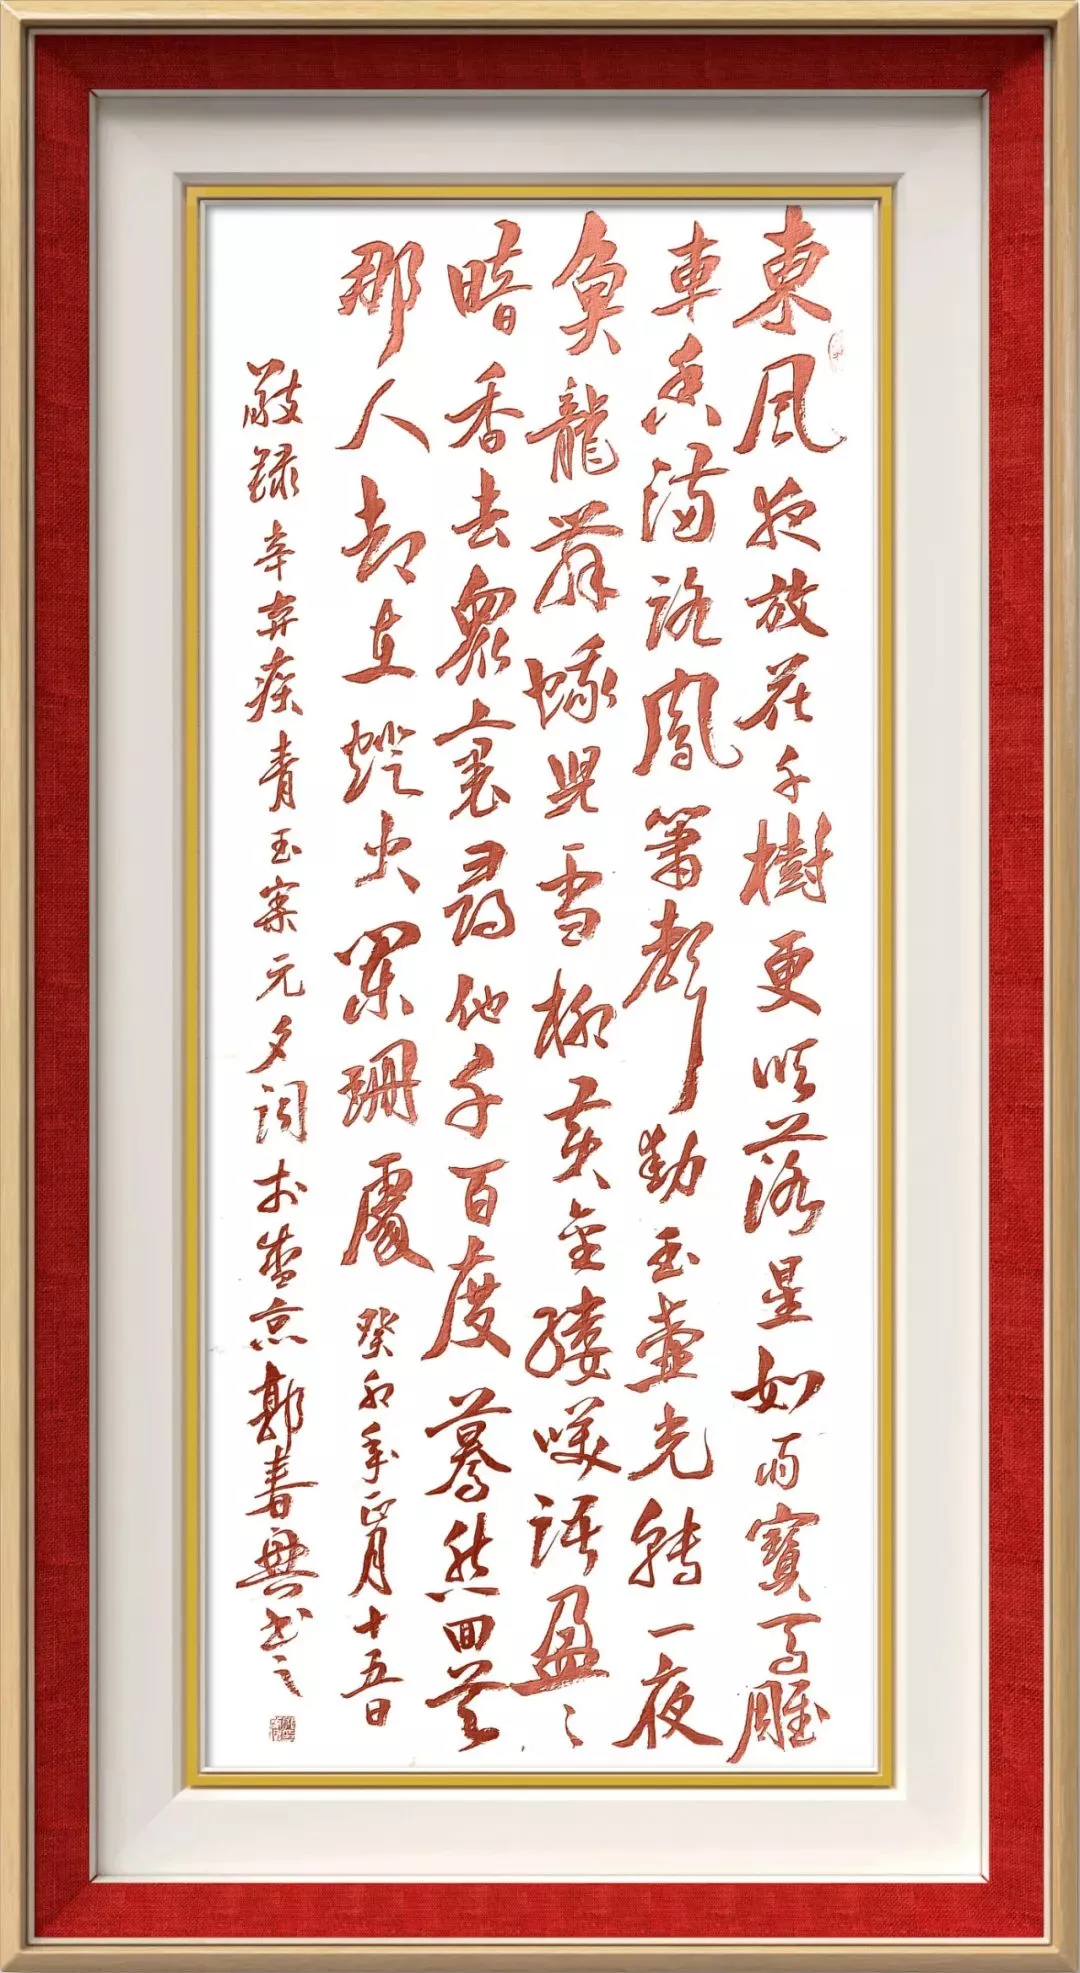 東風夜放花千樹更吹落星如雨寶馬雕
車香滿路鳳簫聲動玉壺光轉一夜
魚龍舞蛾兒雪柳黃金縷咲語盈〻
暗香去眾裏尋他千百度驀然回首
那人却在燈火闌珊處 癸卯年正月十五日
敬録辛弃疾青玉案元夕詞於京春書之